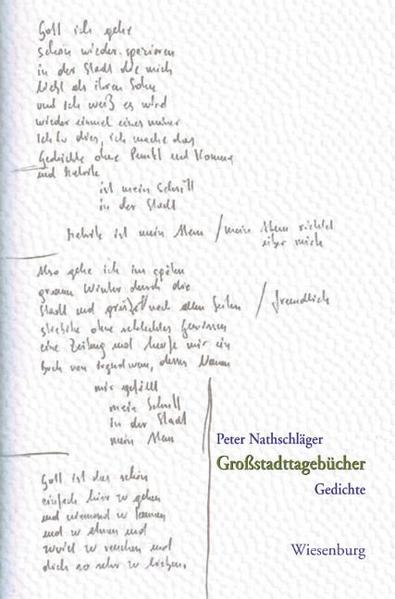 Gott ich gehe
schon wieder spazieren
in der Stadt die mich
liebt als ihren Sohn
und ich weiß es wird
wieder einmal eines meiner
Ich bin dies, ich mache das
Gedichte ohne Punkt und Komma
und Metrik
ist mein Schritt
in der Stadt
Metrik ist mein Atem / mein Atem richtet
über mich
Also gehe ich im späten
grauen Winter durch die
Stadt und grüße nach allen Seiten / freundlich
ohne schlechtes Gewissen
eine Zeitung und kaufe mir ein
Buch von irgendwem, dessen Namen
mir gefällt
mein Schritt
in der Stadt
mein Atem
Gott ist das schön
einfach hier zu gehen
und niemand zu kennen
und zu atmen und
zuviel zu rauchen und
dich so sehr zu lieben.
Peter Nathschläger
Großstadttagebücher
Gedichte
Wiesenburg